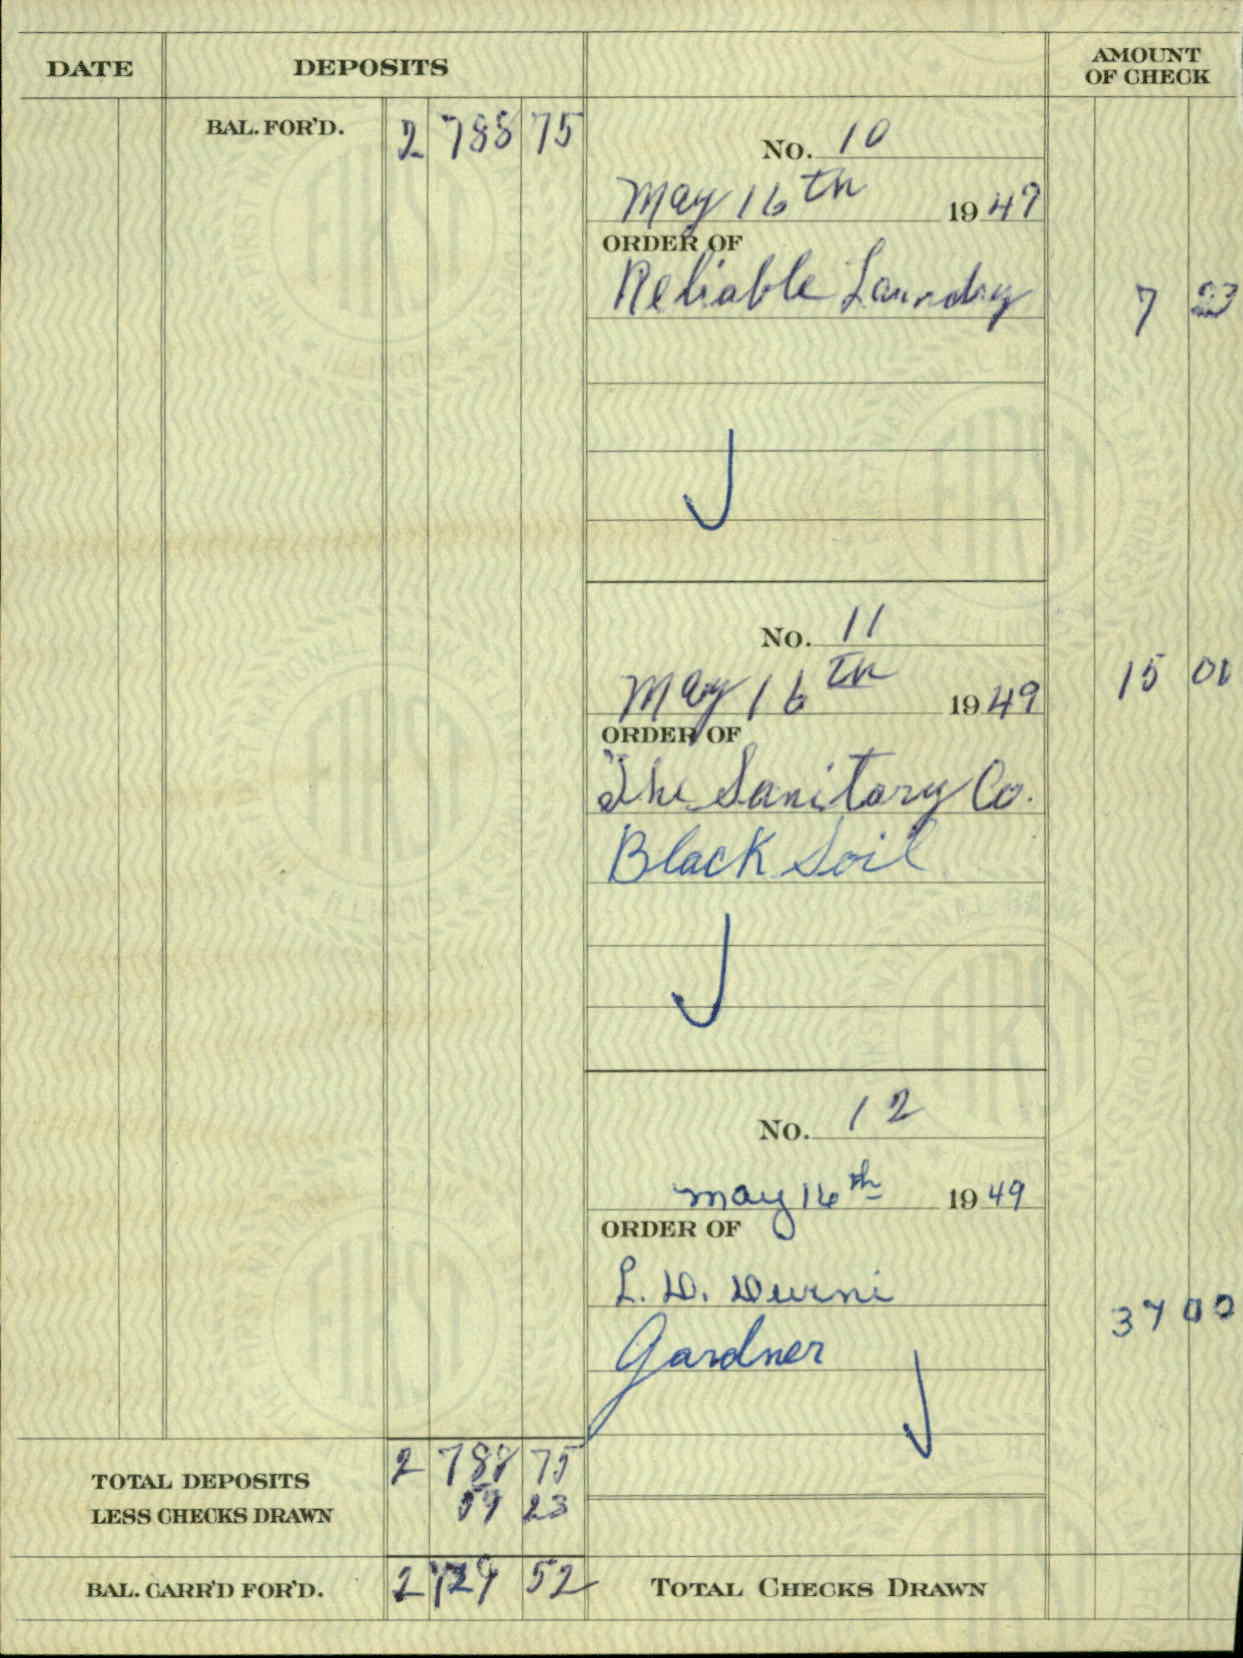 DATE DEPOSITS AMOUNT OF CHECK
BAL. FOR'D. 2 788 75
No. 10
May 16th 1949
ORDER OF
Reliable Laundry 7 23
No. 11
May 16th 1949 15 00
ORDER OF
The Sanitary Co.
Black Soil
No. 12
May 16th 1949
ORDER OF
L. D.
Gardner 37 00
TOTAL DEPOSITS 2 788 75
LESS CHECKS DRAWN 59 23
BAL. CARR'D FOR'D. 2 729 52 TOTAL CHECKS DRAWN